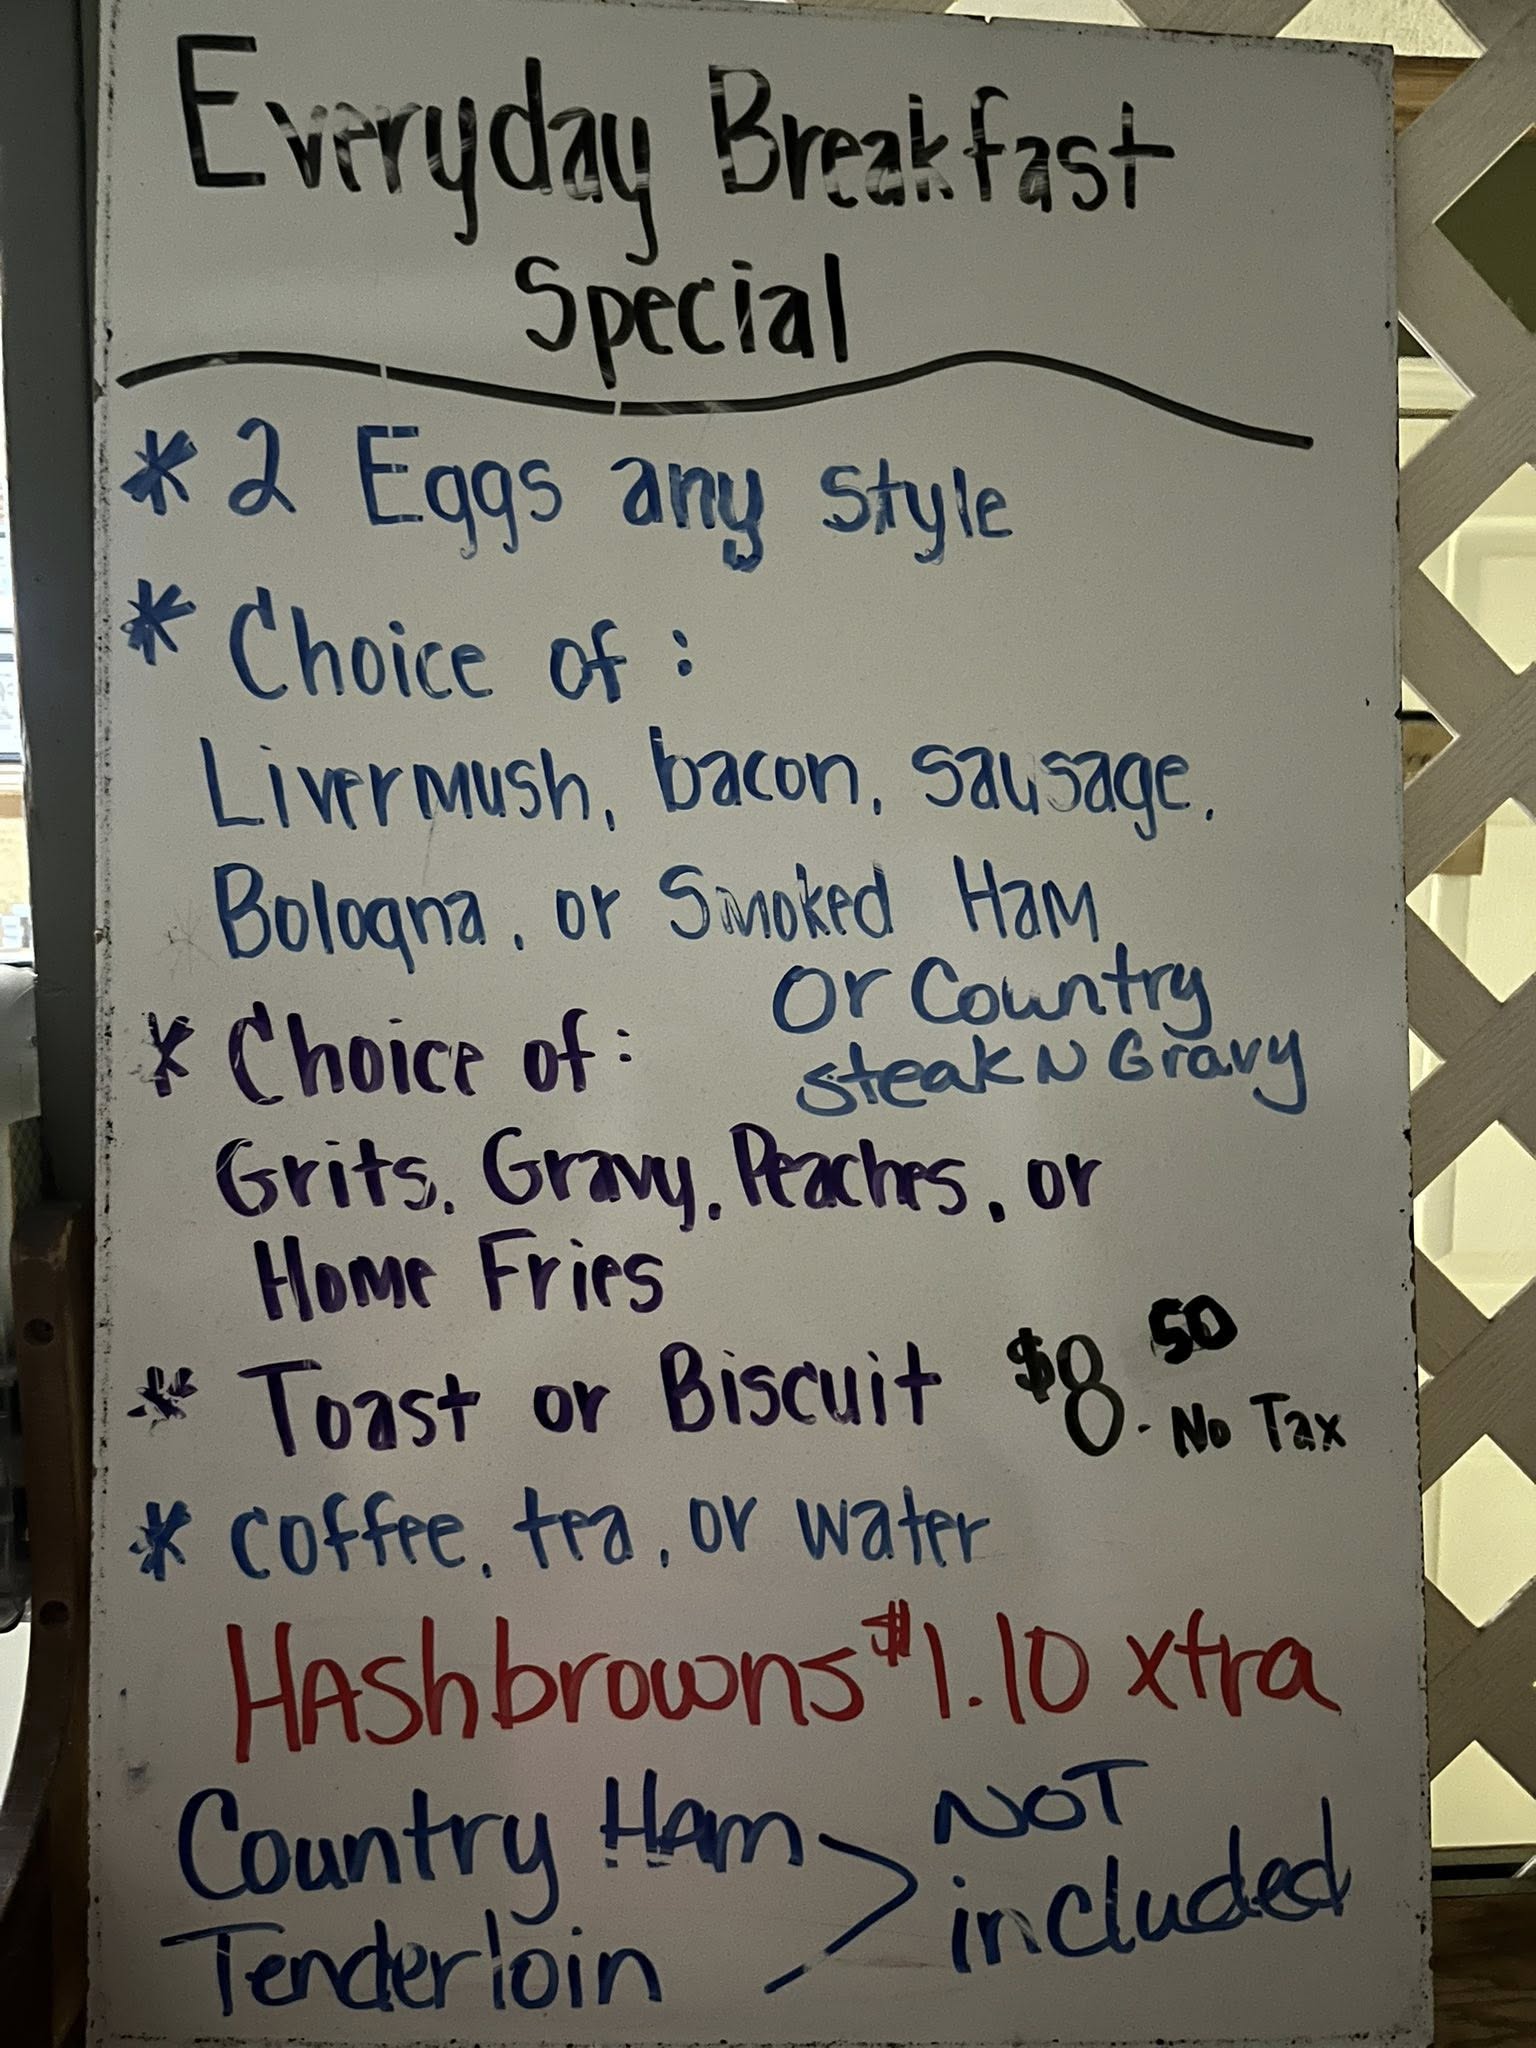 Everyday Breakfast
Special
* 2 Eggs any style
* Choice of:
Livermush, bacon, sausage,
Bologna, or Smoked Ham
or Country
steak N Gravy
* Choice of:
Grits, Gravy, Peaches, or
Home Fries
* Toast or Biscuit $8.50 No Tax
* coffee, tea, or water
HAshbrowns $1.10 xtra
Country Ham
Tenderloin
NOT
included